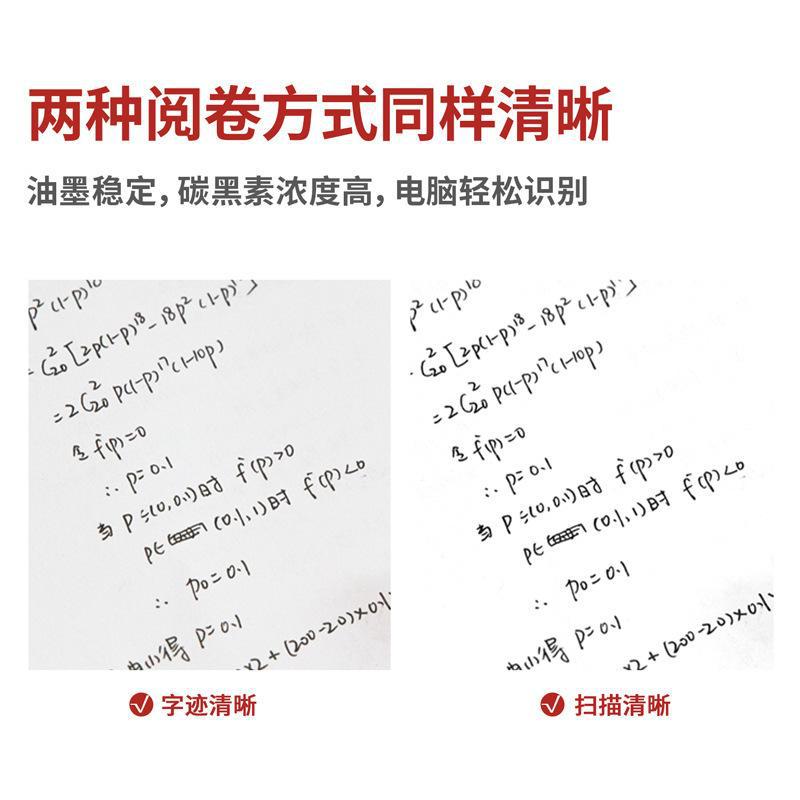 两种阅卷方式同样清晰
油墨稳定，碳黑素浓度高，电脑轻松识别
p²(1-p)¹⁸
= C₂₀² [2p(1-p)¹⁸ - 18p² (1-p)¹⁷]
= 2C₂₀² p(1-p)¹⁷ (1-10p)
令 f'(p)=0
∴ p=0.1
当 p=(0,0.1)时 f'(p)>0
p∈ (0.1,1)时 f'(p)<0
∴ p₀=0.1
由(1)得 p=0.1
×2+(200-20)×0.1
p²(1-p)¹⁸
C₂₀² [2p(1-p)¹⁸ - 18p² (1-p)¹⁷]
= 2C₂₀² p(1-p)¹⁷ (1-10p)
令 f'(p)=0
∴ p=0.1
当 p=(0,0.1)时 f'(p)>0
p∈ (0.1,1)时 f'(p)<0
∴ p₀=0.1
由(1)得 p=0.1
×2+(200-20)×0.1
字迹清晰
扫描清晰